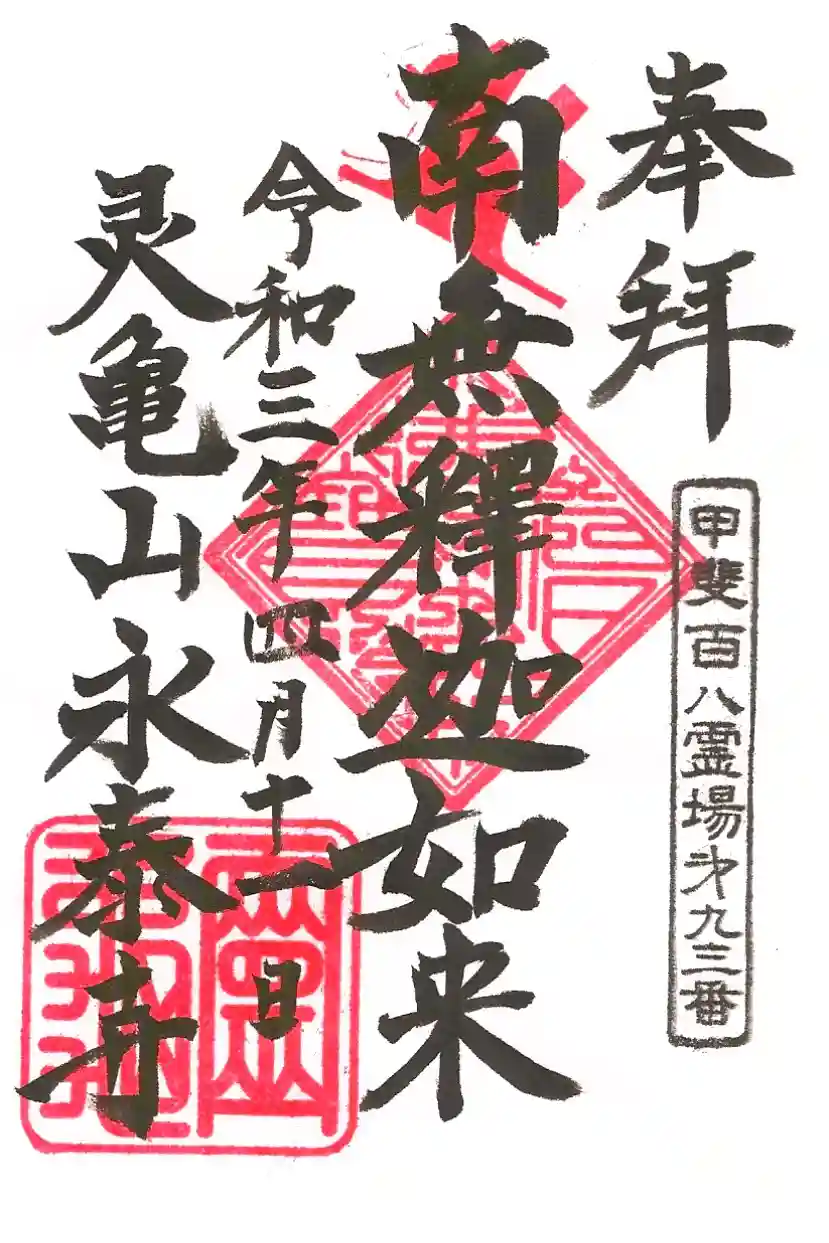 奉拝
甲斐百八霊場㐧九三番
南無釋迦如来
令和三年四月十一日
灵亀山永泰寺